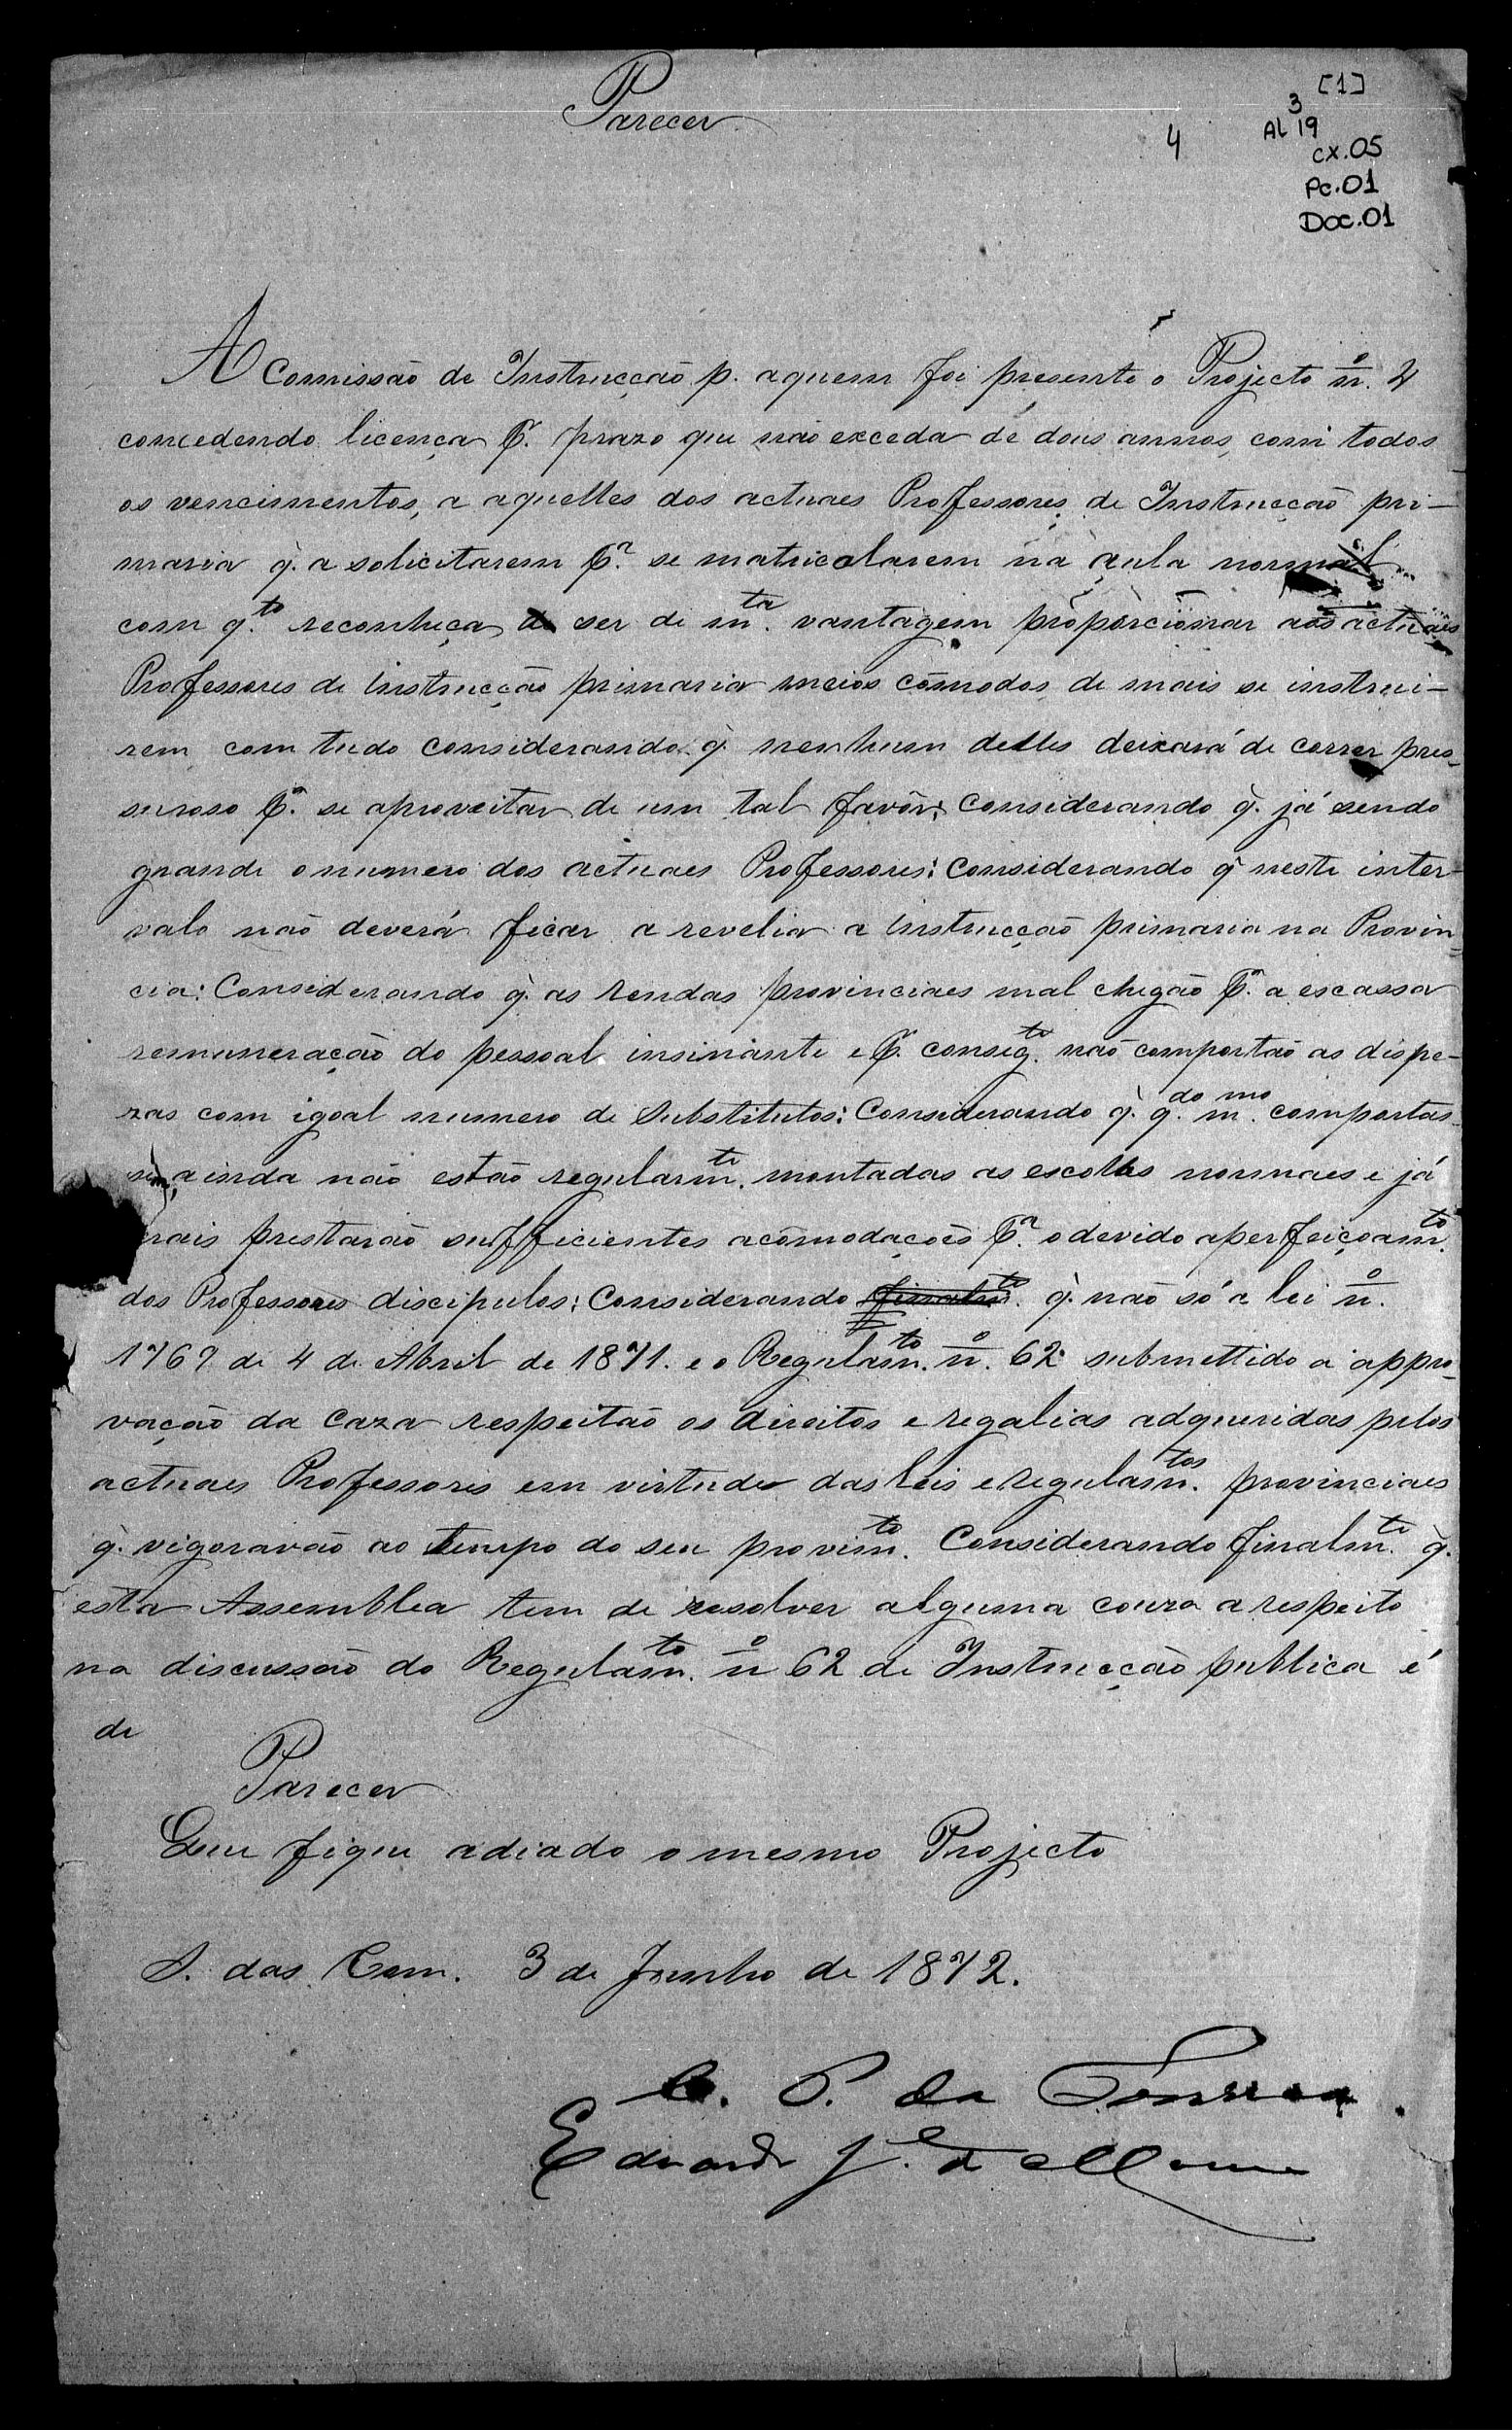 Parecer
[1]
3
4
AL 19
CX.05
PC.01
Doc.01
A Comissão de Instrucção p. aquem foi presente o Projecto nº. 4
concedendo licença p. prazo que não exceda de dous annos, com todos
os vencimentos, a aquelles dos actuaes Professores de Instrucção pri-
maria q. a solicitarem pª. se matricolarem na aula normal
com q.to reconheça ser de m.ta vantagem proporcionar aos actuaes
Professores de instrucção primaria meios cõmodos de mais se instrui-
rem, com tudo considerando q. nenhum delles deixará de correr pres-
suroso pª. se aproveitar de um tal favôr: Considerando q. já sendo
grande o numero dos actuaes Professores: Considerando q. neste inter-
valo não deverá ficar a revelia a instrucção primaria na Provin-
cia: Considerando q. as rendas provinciaes mal chegão pª. a escassa
remuneração do pessoal insinante e p. conseg.te não comportão as dispe-
zas com igoal numero de Substitutos: Considerando q. q.do m.mo comportas-
sem, ainda não estão regularm.te montadas as escollas normaes e já
mais prestarão sufficientes acõmodações pª. o devido aperfeiçoam.to
dos Professores discipulos: Considerando finalm.te q. não só a lei nº.
1769 de 4 de Abril de 1871. e o Regulam.to nº. 62 submettido a appro-
vação da Caza respeitão os direitos e regalias adqueridas pelos
actuaes Professores em virtude das leis e regulam.tos provinciaes
q. vigoravão ao tempo do seu provim.to Considerando finalm.te q.
esta Assemblea tem de resolver alguma couza a respeito
na discussão do Regulam.to nº 62 de Instrucção publica é
de
Parecer
Que fique adiado o mesmo Projecto
S. das Com. 3 de Junho de 1872.
C. P. da Fonseca
Eduardo J.e de Moura